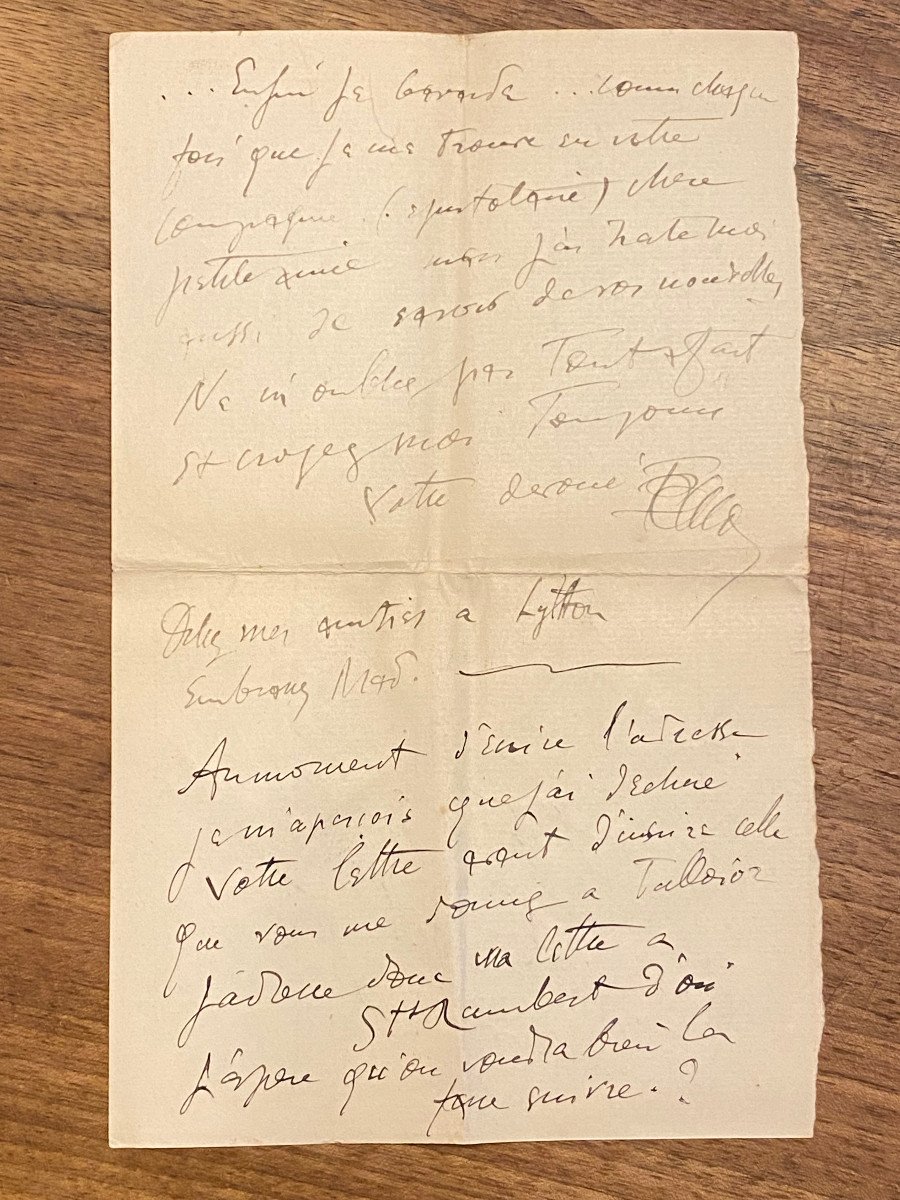 ... Enfin je bavarde ... comme chaque
fois que je me trouve en votre
compagnie (epistolaire) chere
petite amie mais j'ai hate moi
aussi de savoir de vos nouvelles
Ne m'oubliez pas Tout a fait
et croyez moi Toujours
votre devoué
Dites mes amitiés a Lytton
Embrassez Mad.
Au moment d'ecrire l'adresse
je m'apercois que j'ai dechiré
votre lettre avant d'inscrire celle
que vous me donnez a Talloires
J'adresse donc ma lettre a
St Rambert d'où
j'espere qu'on voudra bien la
faire suivre.?